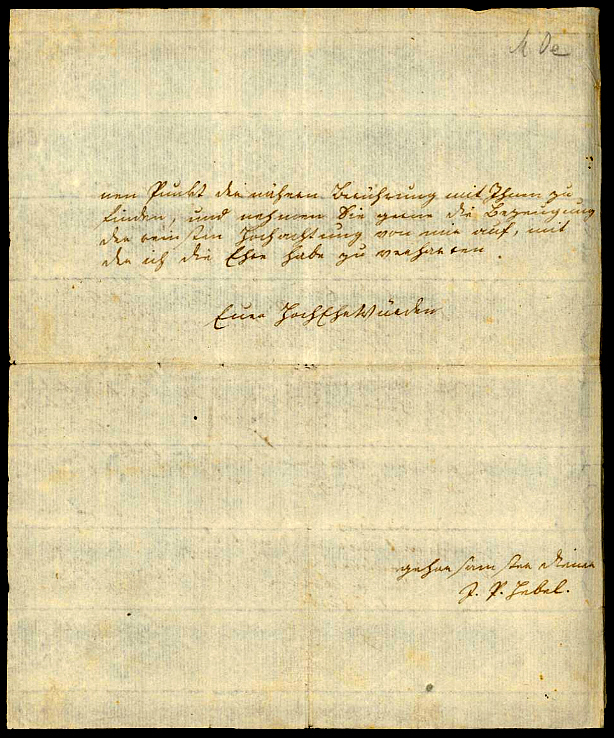 nen Punkt der nähern Berührung mit Ihnen zu
finden, und nehmen Sie gerne die Bezeugung
der reinsten Hochachtung von mir auf, mit
der ich die Ehre habe zu verharren.
Euer HochEhrWürden
gehorsamster Diener
J. P. Hebel.